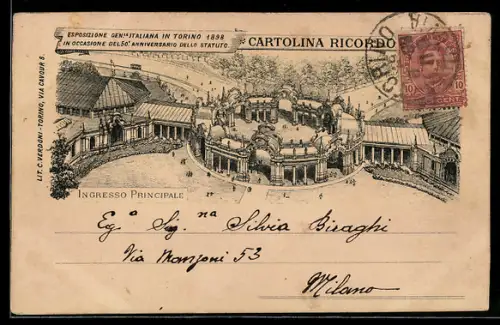 ESPOSIZIONE GEN.LE ITALIANA IN TORINO 1898
IN OCCASIONE DEL 50° ANNIVERSARIO DELLO STATUTO.
CARTOLINA RICORDO
LIT. C. VERDONI - TORINO, VIA CAVOUR 9.
10 10
INGRESSO PRINCIPALE
Eg.a Sig.na Silvia Biraghi
Via Manzoni 53
Milano